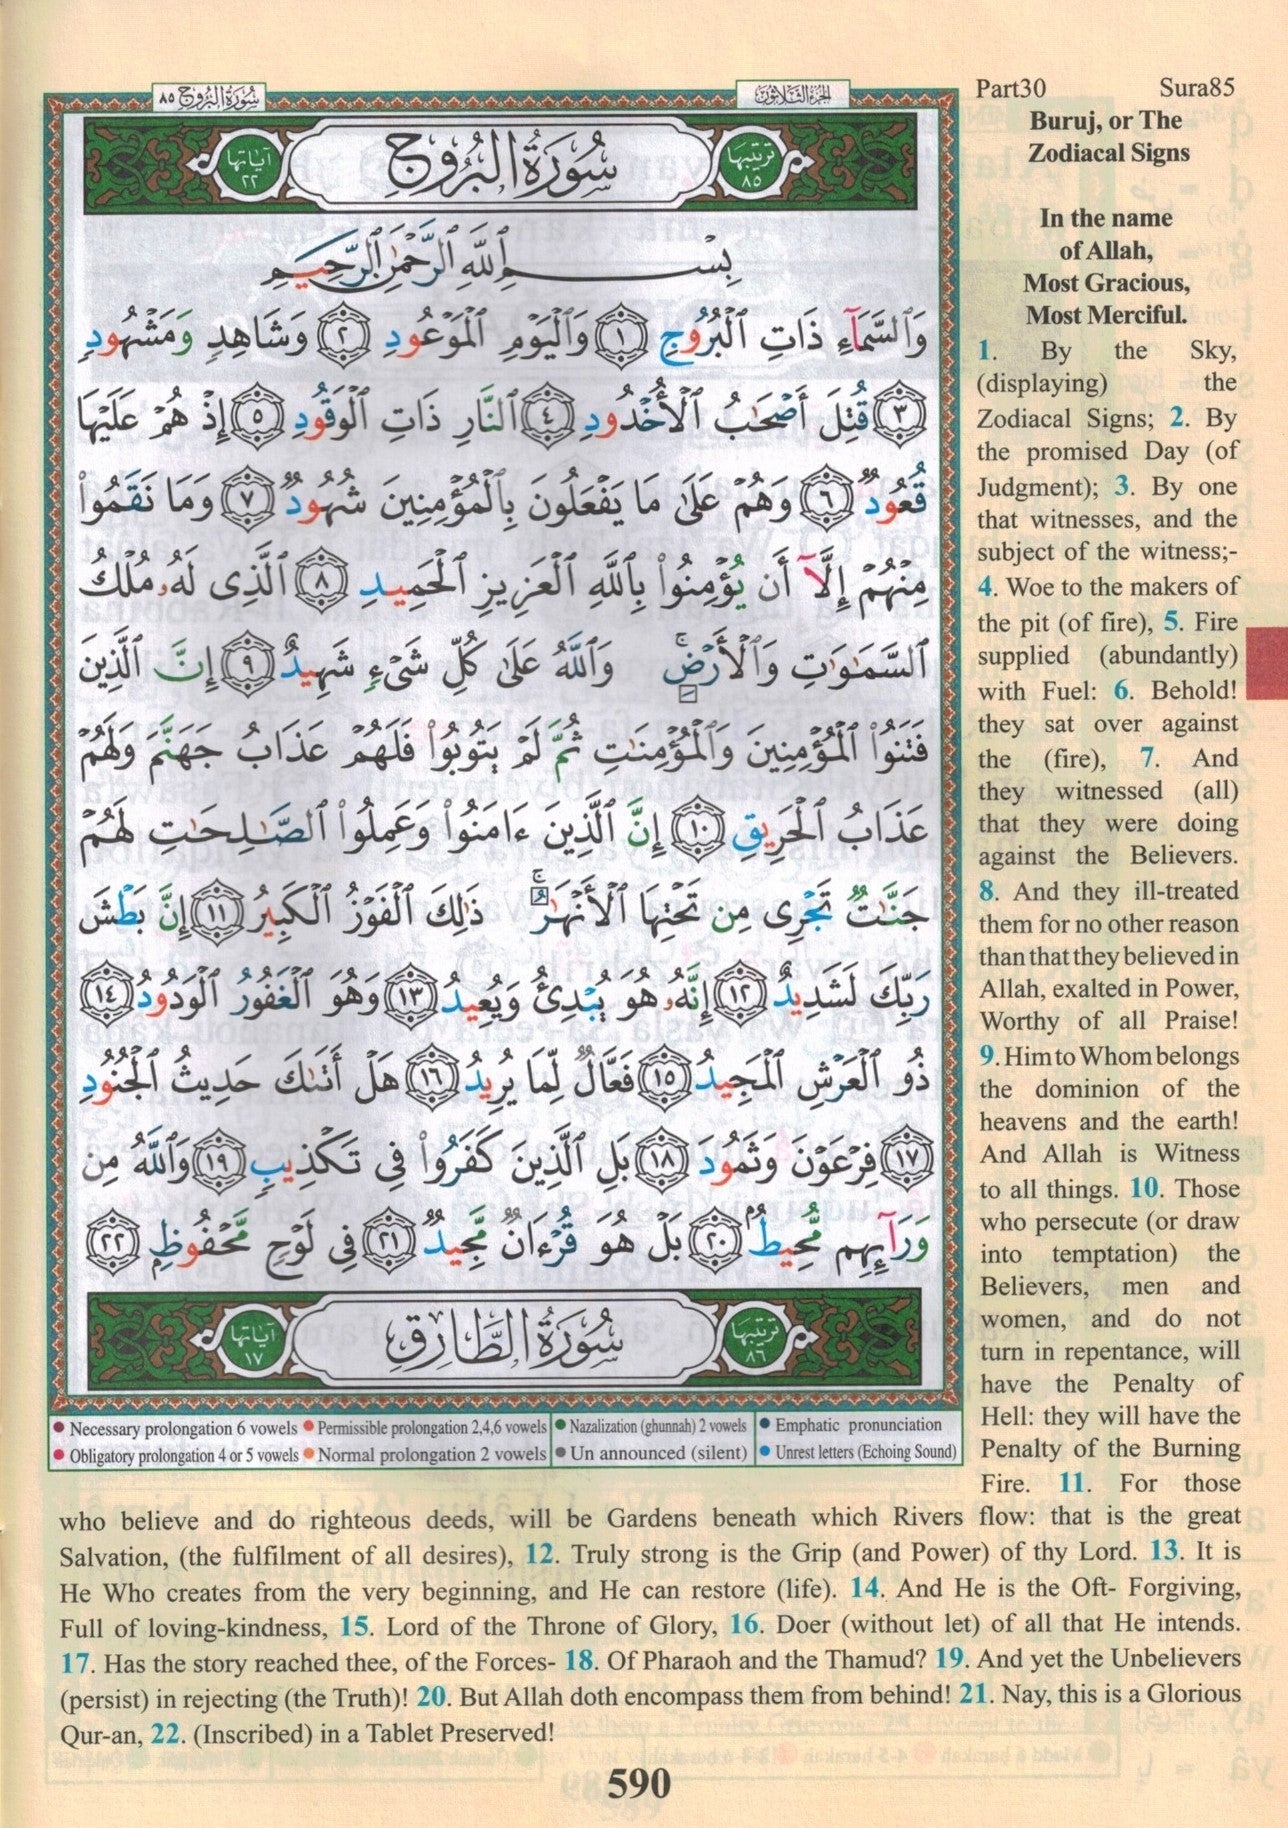 سُورَةُ البُرُوجِ ٨٥
الجُزْءُ الثَّلَاثُونَ
Part30 Sura85
آيَاتُهَا ٢٢
سُورَةُ البُرُوجِ
تَرْتِيبُهَا ٨٥
بِسْمِ ٱللَّهِ ٱلرَّحْمَٰنِ ٱلرَّحِيمِ
وَٱلسَّمَآءِ ذَاتِ ٱلْبُرُوجِ ١ وَٱلْيَوْمِ ٱلْمَوْعُودِ ٢ وَشَاهِدٍ وَمَشْهُودٍ
٣ قُتِلَ أَصْحَٰبُ ٱلْأُخْدُودِ ٤ ٱلنَّارِ ذَاتِ ٱلْوَقُودِ ٥ إِذْ هُمْ عَلَيْهَا
قُعُودٌ ٦ وَهُمْ عَلَىٰ مَا يَفْعَلُونَ بِٱلْمُؤْمِنِينَ شُهُودٌ ٧ وَمَا نَقَمُوا۟
مِنْهُمْ إِلَّآ أَن يُؤْمِنُوا۟ بِٱللَّهِ ٱلْعَزِيزِ ٱلْحَمِيدِ ٨ ٱلَّذِى لَهُۥ مُلْكُ
ٱلسَّمَٰوَٰتِ وَٱلْأَرْضِ ۚ وَٱللَّهُ عَلَىٰ كُلِّ شَىْءٍ شَهِيدٌ ٩ إِنَّ ٱلَّذِينَ
فَتَنُوا۟ ٱلْمُؤْمِنِينَ وَٱلْمُؤْمِنَٰتِ ثُمَّ لَمْ يَتُوبُوا۟ فَلَهُمْ عَذَابُ جَهَنَّمَ وَلَهُمْ
عَذَابُ ٱلْحَرِيقِ ١٠ إِنَّ ٱلَّذِينَ ءَامَنُوا۟ وَعَمِلُوا۟ ٱلصَّٰلِحَٰتِ لَهُمْ
جَنَّٰتٌ تَجْرِى مِن تَحْتِهَا ٱلْأَنْهَٰرُ ۚ ذَٰلِكَ ٱلْفَوْزُ ٱلْكَبِيرُ ١١ إِنَّ بَطْشَ
رَبِّكَ لَشَدِيدٌ ١٢ إِنَّهُۥ هُوَ يُبْدِئُ وَيُعِيدُ ١٣ وَهُوَ ٱلْغَفُورُ ٱلْوَدُودُ ١٤
ذُو ٱلْعَرْشِ ٱلْمَجِيدُ ١٥ فَعَّالٌ لِّمَا يُرِيدُ ١٦ هَلْ أَتَىٰكَ حَدِيثُ ٱلْجُنُودِ
١٧ فِرْعَوْنَ وَثَمُودَ ١٨ بَلِ ٱلَّذِينَ كَفَرُوا۟ فِى تَكْذِيبٍ ١٩ وَٱللَّهُ مِن
وَرَآئِهِم مُّحِيطٌۢ ٢٠ بَلْ هُوَ قُرْءَانٌ مَّجِيدٌ ٢١ فِى لَوْحٍ مَّحْفُوظٍۭ ٢٢
آيَاتُهَا ١٧
سُورَةُ الطَّارِقِ
تَرْتِيبُهَا ٨٦
Necessary prolongation 6 vowels Permissible prolongation 2,4,6 vowels Nazalization (ghunnah) 2 vowels Emphatic pronunciation
Obligatory prolongation 4 or 5 vowels Normal prolongation 2 vowels Un announced (silent) Unrest letters (Echoing Sound)
Buruj, or The
Zodiacal Signs
In the name
of Allah,
Most Gracious,
Most Merciful.
1. By the Sky,
(displaying) the
Zodiacal Signs; 2. By
the promised Day (of
Judgment); 3. By one
that witnesses, and the
subject of the witness;-
4. Woe to the makers of
the pit (of fire), 5. Fire
supplied (abundantly)
with Fuel: 6. Behold!
they sat over against
the (fire), 7. And
they witnessed (all)
that they were doing
against the Believers.
8. And they ill-treated
them for no other reason
than that they believed in
Allah, exalted in Power,
Worthy of all Praise!
9. Him to Whom belongs
the dominion of the
heavens and the earth!
And Allah is Witness
to all things. 10. Those
who persecute (or draw
into temptation) the
Believers, men and
women, and do not
turn in repentance, will
have the Penalty of
Hell: they will have the
Penalty of the Burning
Fire. 11. For those
who believe and do righteous deeds, will be Gardens beneath which Rivers flow: that is the great
Salvation, (the fulfilment of all desires), 12. Truly strong is the Grip (and Power) of thy Lord. 13. It is
He Who creates from the very beginning, and He can restore (life). 14. And He is the Oft- Forgiving,
Full of loving-kindness, 15. Lord of the Throne of Glory, 16. Doer (without let) of all that He intends.
17. Has the story reached thee, of the Forces- 18. Of Pharaoh and the Thamud? 19. And yet the Unbelievers
(persist) in rejecting (the Truth)! 20. But Allah doth encompass them from behind! 21. Nay, this is a Glorious
Qur-an, 22. (Inscribed) in a Tablet Preserved!
590